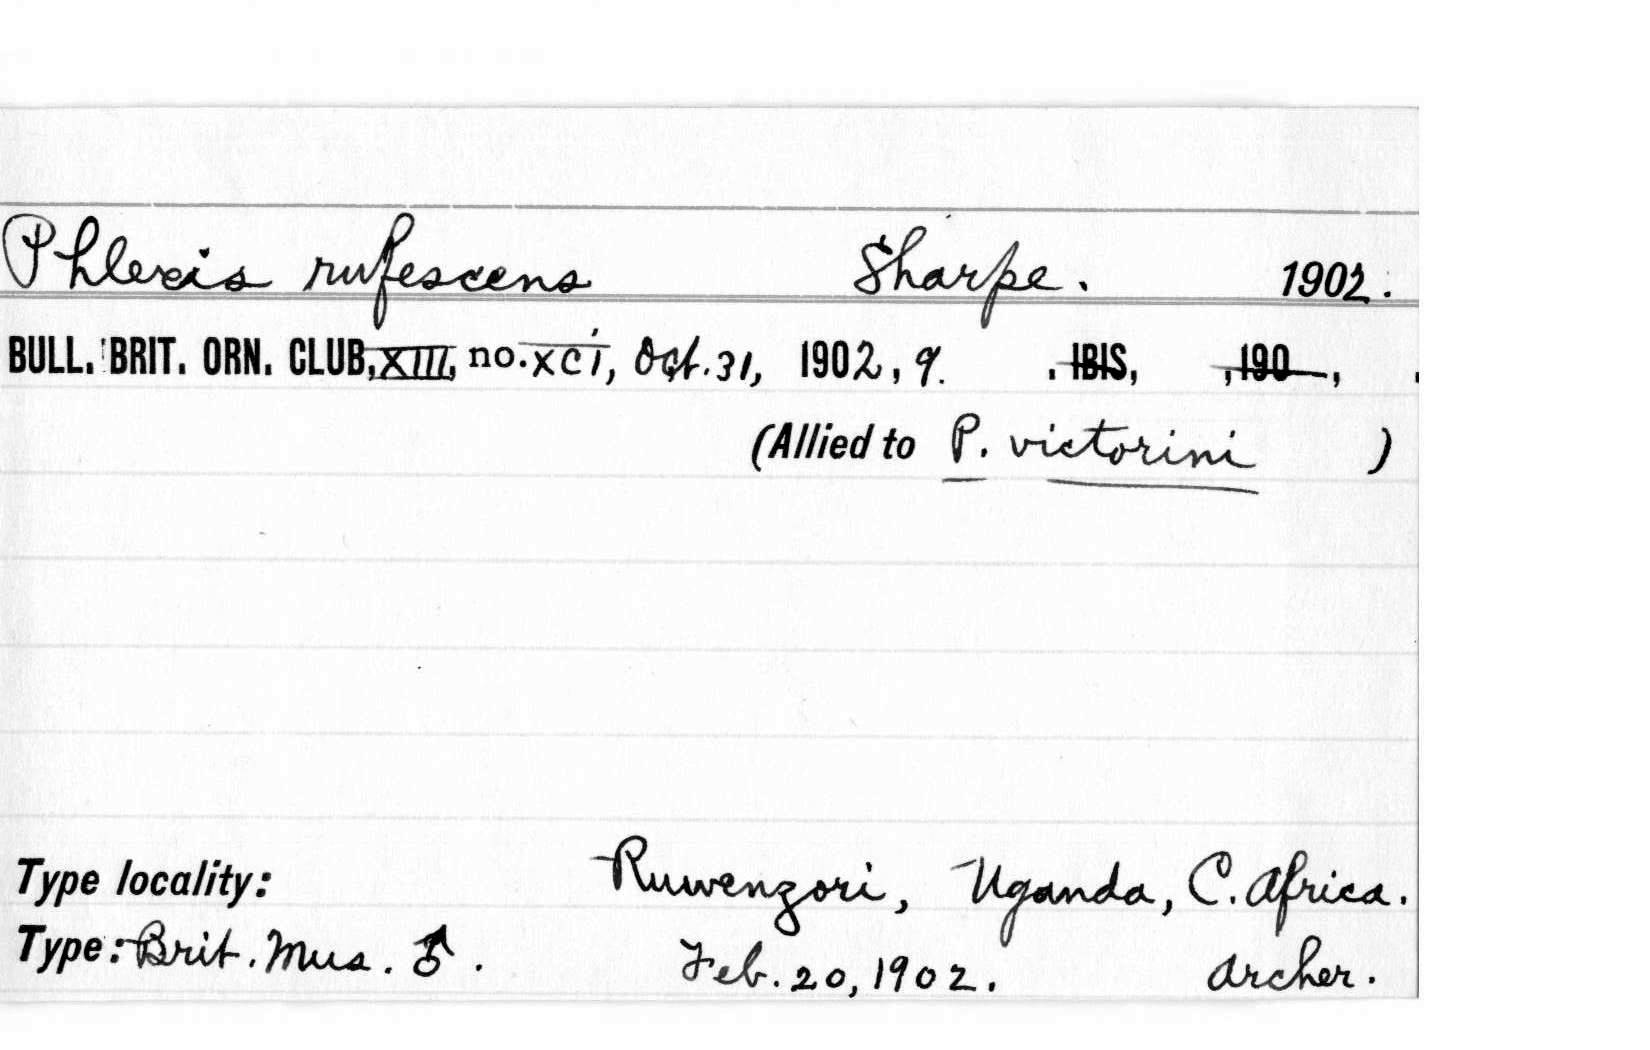 Phlexis rufescens Sharpe. 1902.
BULL. BRIT. ORN. CLUB, XIII, no. xci, Oct. 31, 1902, 9. . IBIS, , 190 , .
(Allied to P. victorini )
Type locality: Ruwenzori, Uganda, C. Africa.
Type: Brit. Mus. ♂. Feb. 20, 1902. Archer.